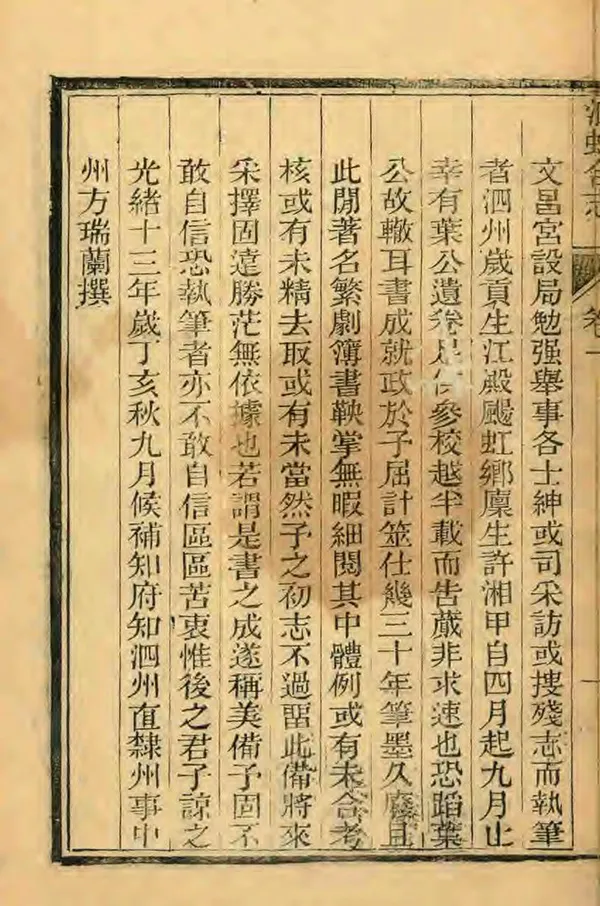 泗虹合志
卷一
文昌宮設局勉强舉事各士紳或司采訪或搜殘志而執筆
者泗州歲貢生江殿颺虹鄉廩生許湘甲自四月起九月止
幸有葉公遺卷足供參校越半載而告蕆非求速也恐蹈葉
公故轍耳書成就政於予屈計筮仕幾三十年筆墨久廢且
此閒著名繁劇簿書鞅掌無暇細閱其中體例或有未合考
核或有未精去取或有未當然予之初志不過畱此備將來
采擇固遠勝茫無依據也若謂是書之成遂稱美備予固不
敢自信恐執筆者亦不敢自信區區苦衷惟後之君子諒之
光緒十三年歲丁亥秋九月候補知府知泗州直隸州事中
州方瑞蘭撰